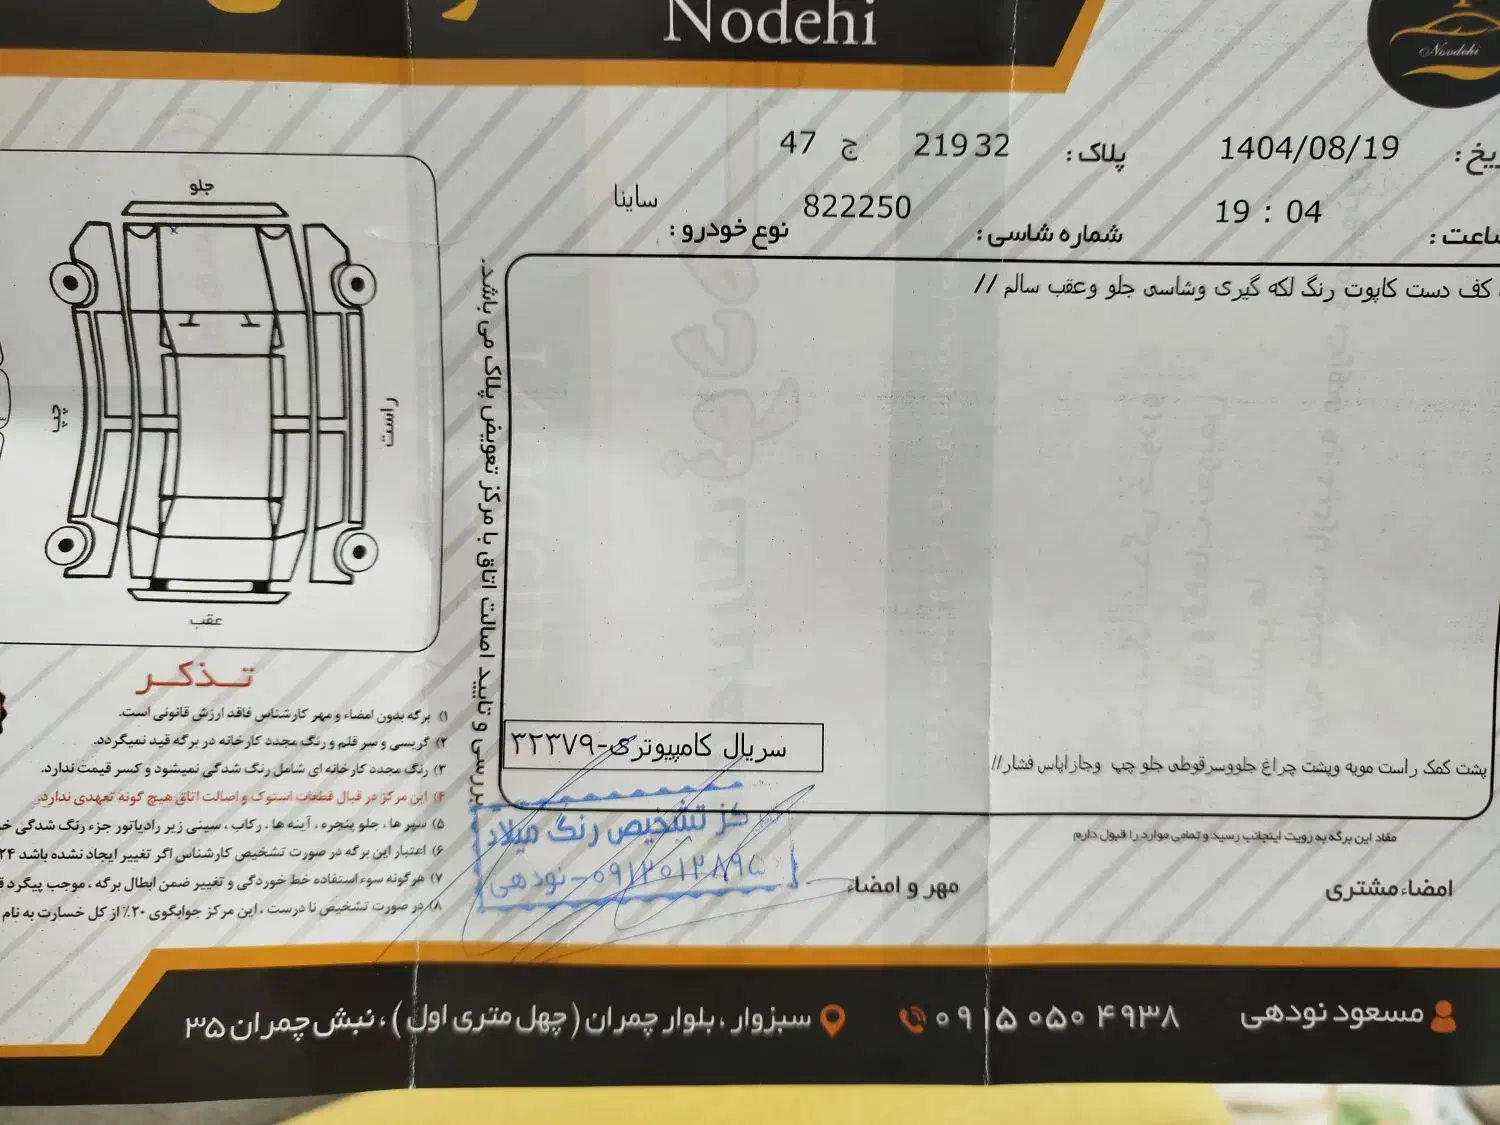 Nodehi
Novdehi
1404/08/19
پلاک: 219 32 ج 47
19 : 04
شماره شاسی: 822250
نوع خودرو: ساینا
کف دست کاپوت رنگ لکه گیری وشاسی جلو وعقب سالم //
پشت کمک راست مویه وپشت چراغ جلووسرقوطی جلو چپ وجازاپاس فشار//
سریال کامپیوتری-۳۲۳۷۹
بررسی و تایید اصالت اتاق با مرکز تعویض پلاک می باشد.
جلو
راست
چپ
عقب
تذکر
۱) برگه بدون امضاء و مهر کارشناس فاقد ارزش قانونی است.
۲) گریسی و سر قلم و رنگ مجدد کارخانه در برگه قید نمیگردد.
۳) رنگ مجدد کارخانه ای شامل رنگ شدگی نمیشود و کسر قیمت ندارد.
۴) این مرکز در قبال قطعات استوک و اصالت اتاق هیچ گونه تعهدی ندارد.
۵) سپر ها ، جلو پنجره ، آینه ها ، رکاب ، سینی زیر رادیاتور جزء رنگ شدگی
۶) اعتبار این برگه در صورت تشخیص کارشناس اگر تغییر ایجاد نشده باشد ۲۴
۷) هرگونه سوء استفاده خط خوردگی و تغییر ضمن ابطال برگه ، موجب پیگرد
۸) در صورت تشخیص نا درست ، این مرکز جوابگوی ۲۰٪ از کل خسارت به نام
مفاد این برگه به رویت اینجانب رسید و تمامی موارد را قبول دارم
امضاء مشتری
مهر و امضاء
تشخیص رنگ میلاد
نودهی
مسعود نودهی
۰۹۱۵ ۰۵۰ ۴۹۳۸
سبزوار ، بلوار چمران (چهل متری اول) ، نبش چمران ۳۵